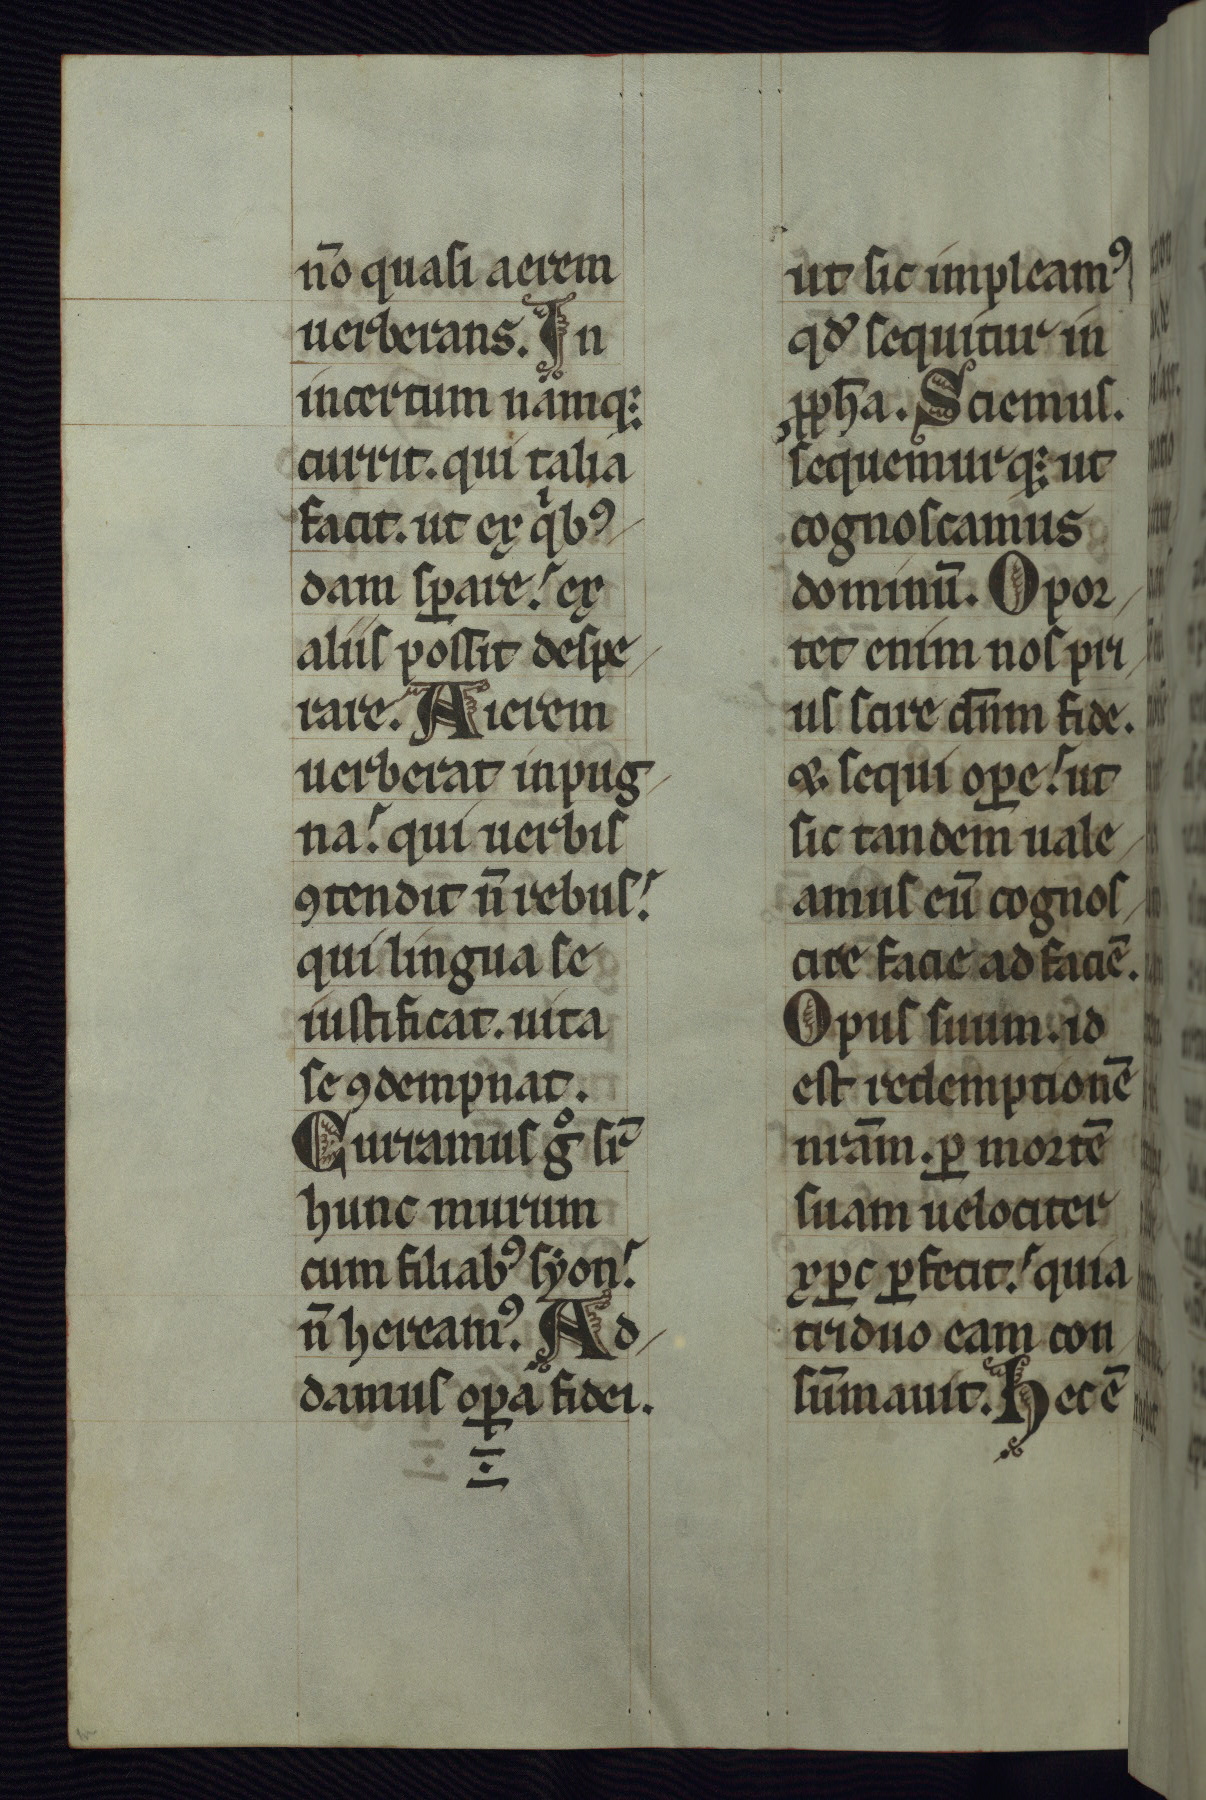 nō quasi aerem
uerberans. In
incertum namq;
currit. qui talia
facit. ut ex qͥbꝯ
dam sꝑare! ex
aliis possit despe
rare. Aierem
uerberat in pug
na! qui uerbis
ꝯtendit n̄ rebus!
qui lingua se
iustificat. uita
se ꝯdempnat.
Curramus gͦ sr̄
hunc murum
cum filiabꝯ syon!
n̄ hereamꝯ. Ad
damus oꝑa fidei.
ut sic impleamꝯ
qd' sequitur in
ꝓph̄a. Sciemus.
sequemurq; ut
cognoscamus
dominū. Opor
tet enim nos pri
us scire dn̄m fide.
⁊ sequi oꝑe! ut
sic tandem uale
amus eū cognos
cire facie ad faciē.
Opus suum. id
est redemptionē
nr̄am. ꝑ mortē
suam uelociter
xꝑc ꝑfecit! quia
triduo eam con
sūmauit. Hec ē